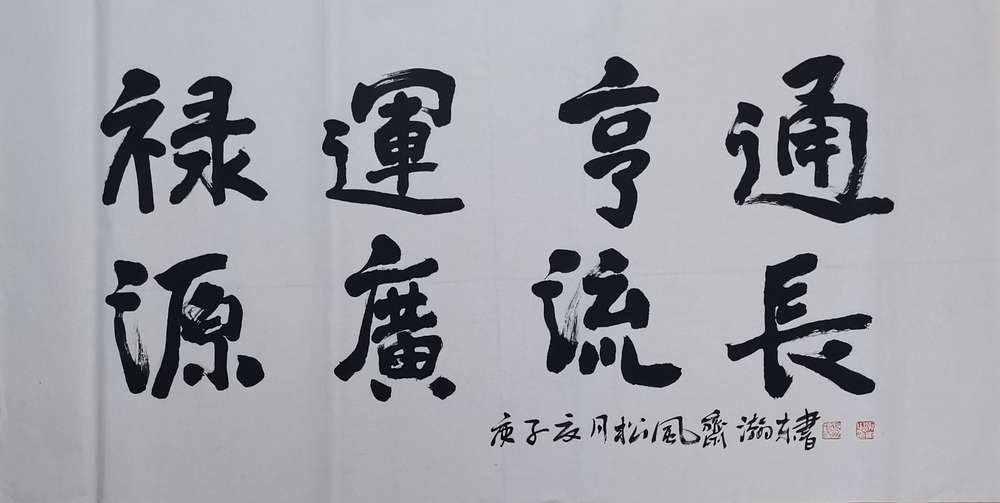 禄運亨通
源廣流長
庚子夏月松風齋瀚东書